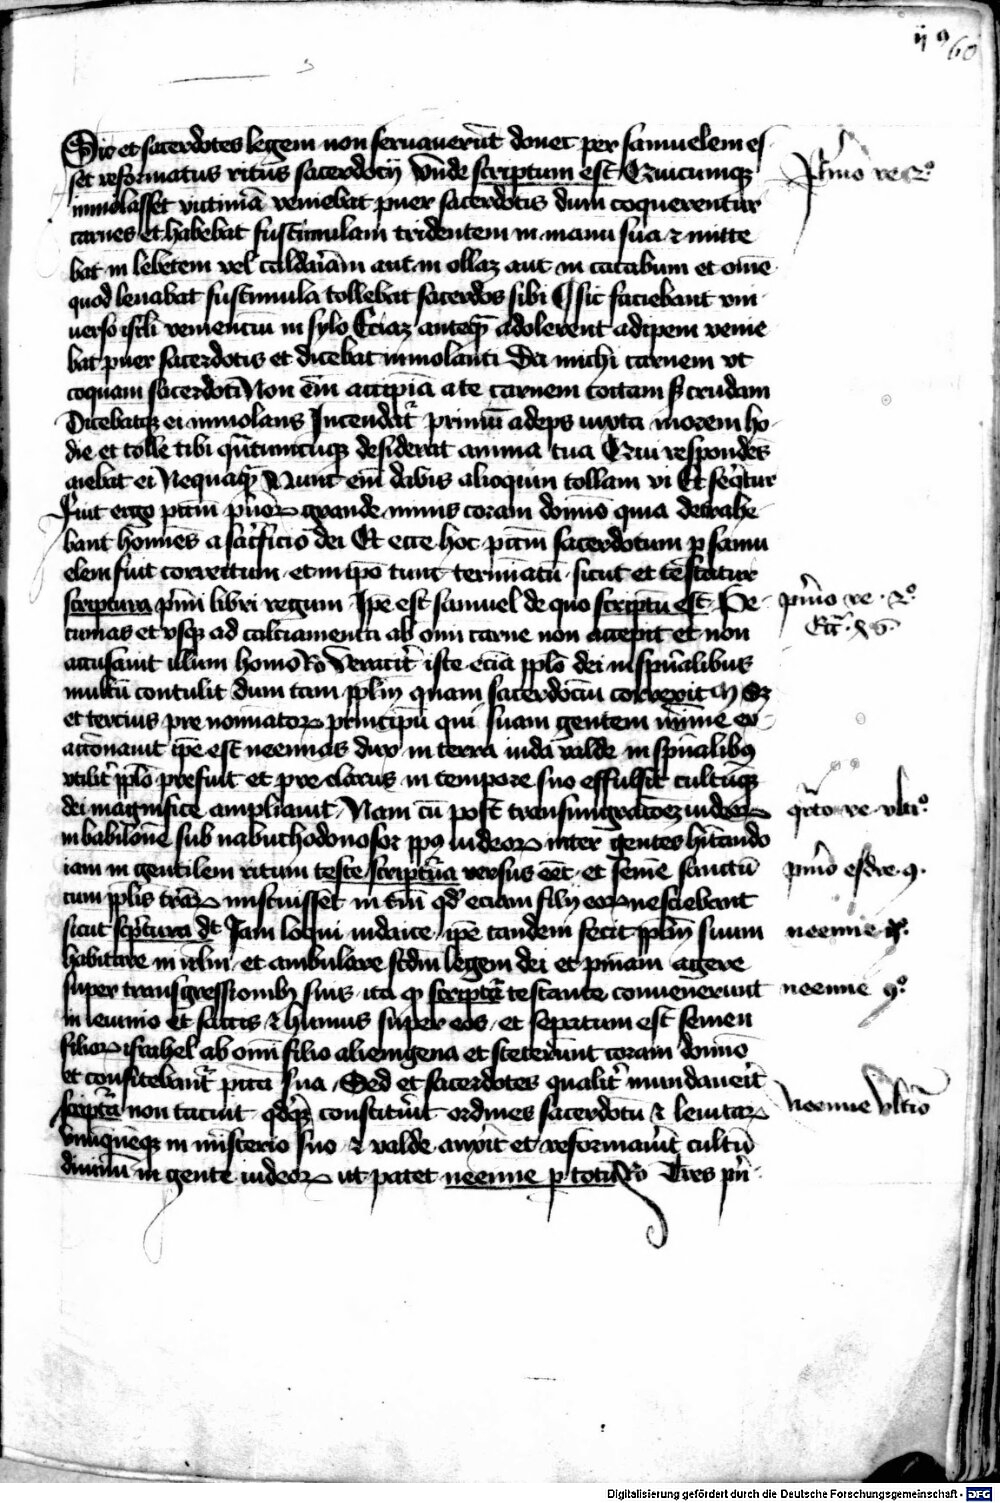 ij 9 60
Sic et sacerdotes legem non seruauerūt donec per samuelem es-
set reformatus ritus sacerdotij Vnde scriptum est Quicumqꝫ
primo re 2º
immolasset victimā veniebat puer sacerdotis dum coquerentur
carnes et habebat fuscinulam tridentem in manu sua ⁊ mitte
bat in lebetem vel caldariam aut in ollaꝫ aut in cacabum et om̄e
quod leuabat fuscinula tollebat sacerdos sibi Sic faciebant vni
uerso isrl̄i venienciū in sylo Eciaꝫ anteqꝫ adolerent adipem venie
bat puer sacerdotis et dicebat immolanti Da michi carnem vt
coquam sacerdoti Non em̄ accipiā a te carnem coctam sꝫ crudam
Dicebatqꝫ ei immolans Incendat᷑ primū adeps iuxta morem ho-
die et tolle tibi qūtumcūqꝫ desiderat anima tua Qui respondēs
aiebat ei Nequaqꝫ Nunc em̄ dabis alioquin tollam vi Et seq̄tur
Fuit ergo pctm̄ p̄uoꝝ grande nimis coram domīo quia detrahe-
bant homīes a sac̄ficio dei Et ecce hoc pctm̄ sacerdotum ꝑ samu
elem fuit correctum et in ip̄o tunc termīatū sicut et testatur
scriptura p̄mi libri regum Ip̄e est samuel de quo scriptū est Pe-
primo re 2º
Ecc̄i
cunias et vsqꝫ ad calciamenta ab omī carne non accepit et non
accusauit illum homo Rº Veracit᷑ iste eciā ppl̄o dei in sp̄ualibus
multū contulit dum tam ppl̄m quam sacerdociū correxit
et tercius pre nominatoꝝ principū qui suam gentem minime ex-
actionauit ip̄e est neemias dux in terra iuda valde in sp̄ualibꝰ
vtilit᷑ ppl̄o prefuit et pre clarus in tempore suo effulsit cultūqꝫ
dei magnifice ampliauit Nam cū post transmigracōeꝫ iudeoꝝ
q̄rto re vlti º
in babilone sub nabuchodonosor pplꝰ iudeoꝝ inter gentes hītando
iam in gentilem ritum teste scriptura versus eēt et semē sanctū
primo esdre 9
cum ppl̄is terraꝝ miscuisset in tm̄ qd' eciam filij eoꝝ nesciebant
sicut scriptura dt Iam loqui iudaice ip̄e tandem fecit ppl̄m suum
neemie º
habitare in irl̄m et ambulare scd̄m legem dei et pn̄iam agere
super transgressionibꝰ suis ita qꝫ scriptura testante conuenerunt
neemie 9º
in ieiunio et saccis ⁊ humus super eos et sep̄atum est semen
filioꝝ israhel ab omī filio alienigena et steterunt coram domīo
et confitebant᷑ pctā sua Sed et sacerdotes qualit᷑ mundauerit
scriptura non tacuit qd'qꝫ constituit ordines sacerdotū ⁊ leuitaꝝ
neemie vltīo
vnumquemqꝫ in misterio suo ⁊ valde auxit et reformauit cultū
diuinū in gente iudeoꝝ ut patet neemie ꝑ totū Rº Tres pri-
Digitalisierung gefördert durch die Deutsche Forschungsgemeinschaft - DFG